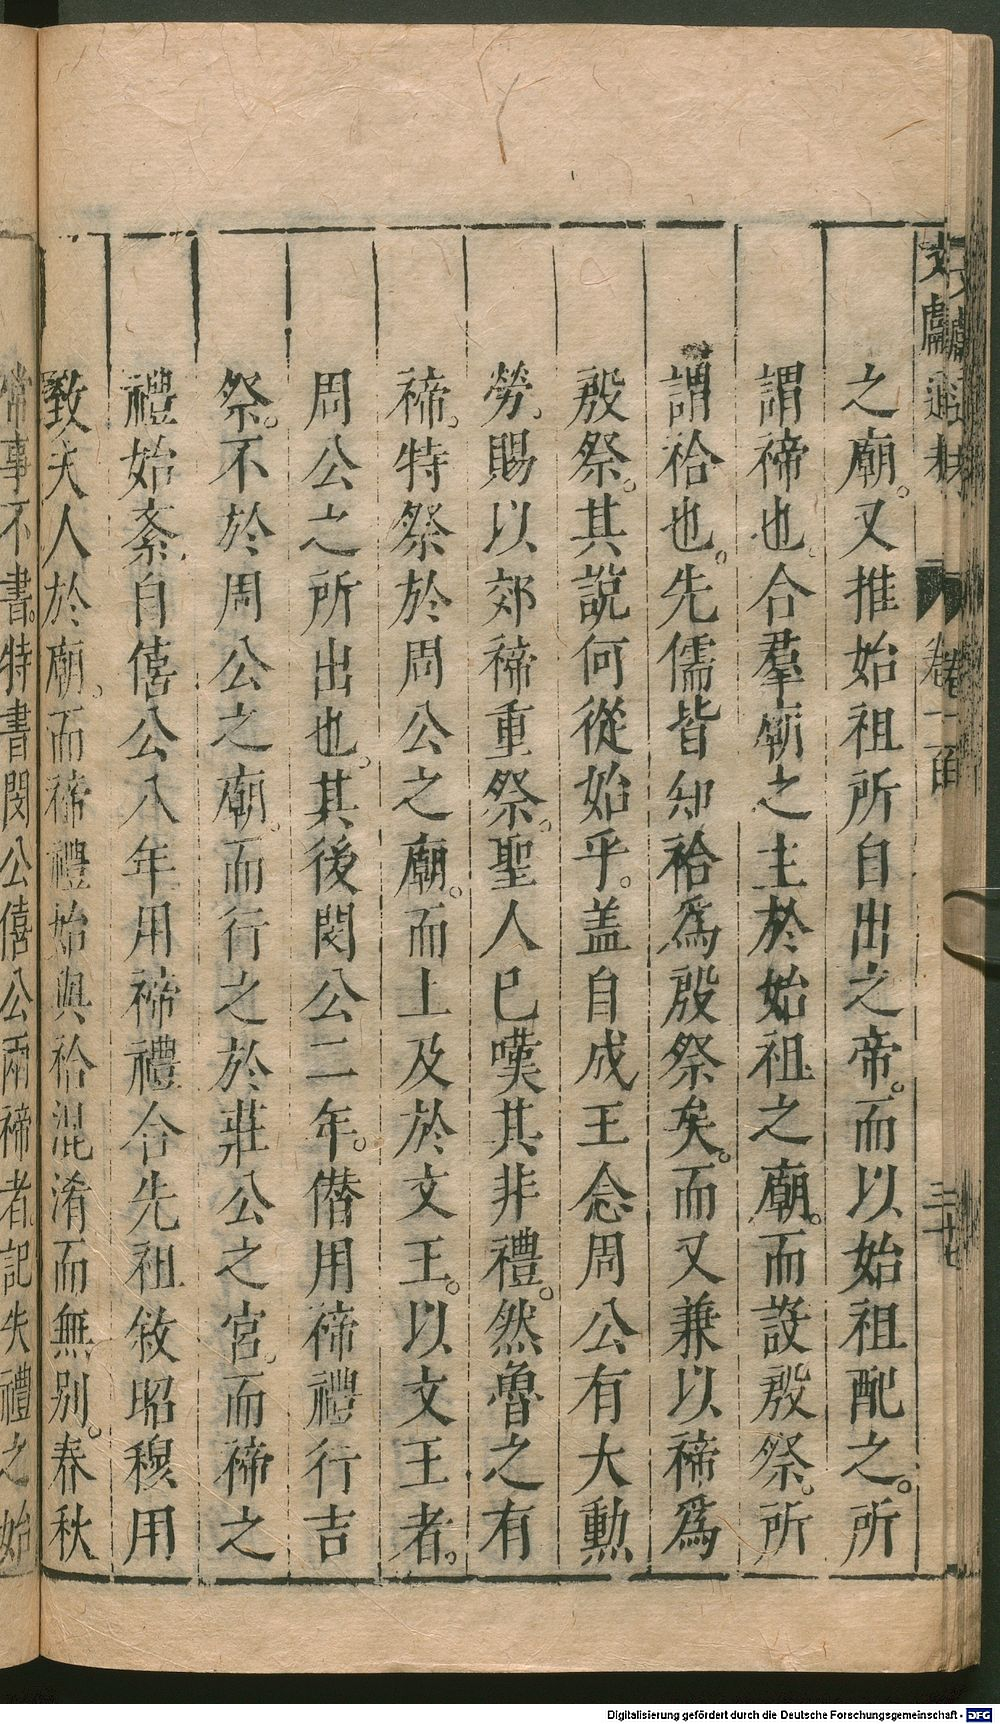 文獻通考 卷一百 三十七
之廟。又推始祖所自出之帝。而以始祖配之。所
謂禘也。合羣廟之主於始祖之廟。而設殷祭。所
謂祫也。先儒皆知祫爲殷祭矣。而又兼以禘爲
殷祭。其說何從始乎。盖自成王念周公有大勲
勞。賜以郊禘重祭。聖人已嘆其非禮。然魯之有
禘。特祭於周公之廟。而上及於文王。以文王者。
周公之所出也。其後閔公二年。僭用禘禮行吉
祭。不於周公之廟。而行之於莊公之宮。而禘之
禮始紊。自僖公八年用禘禮合先祖敘昭穆用
致夫人於廟。而禘禮始與祫混淆而無別。春秋
常事不書。特書閔公僖公兩禘者。記失禮之始
Digitalisierung gefördert durch die Deutsche Forschungsgemeinschaft - DFG